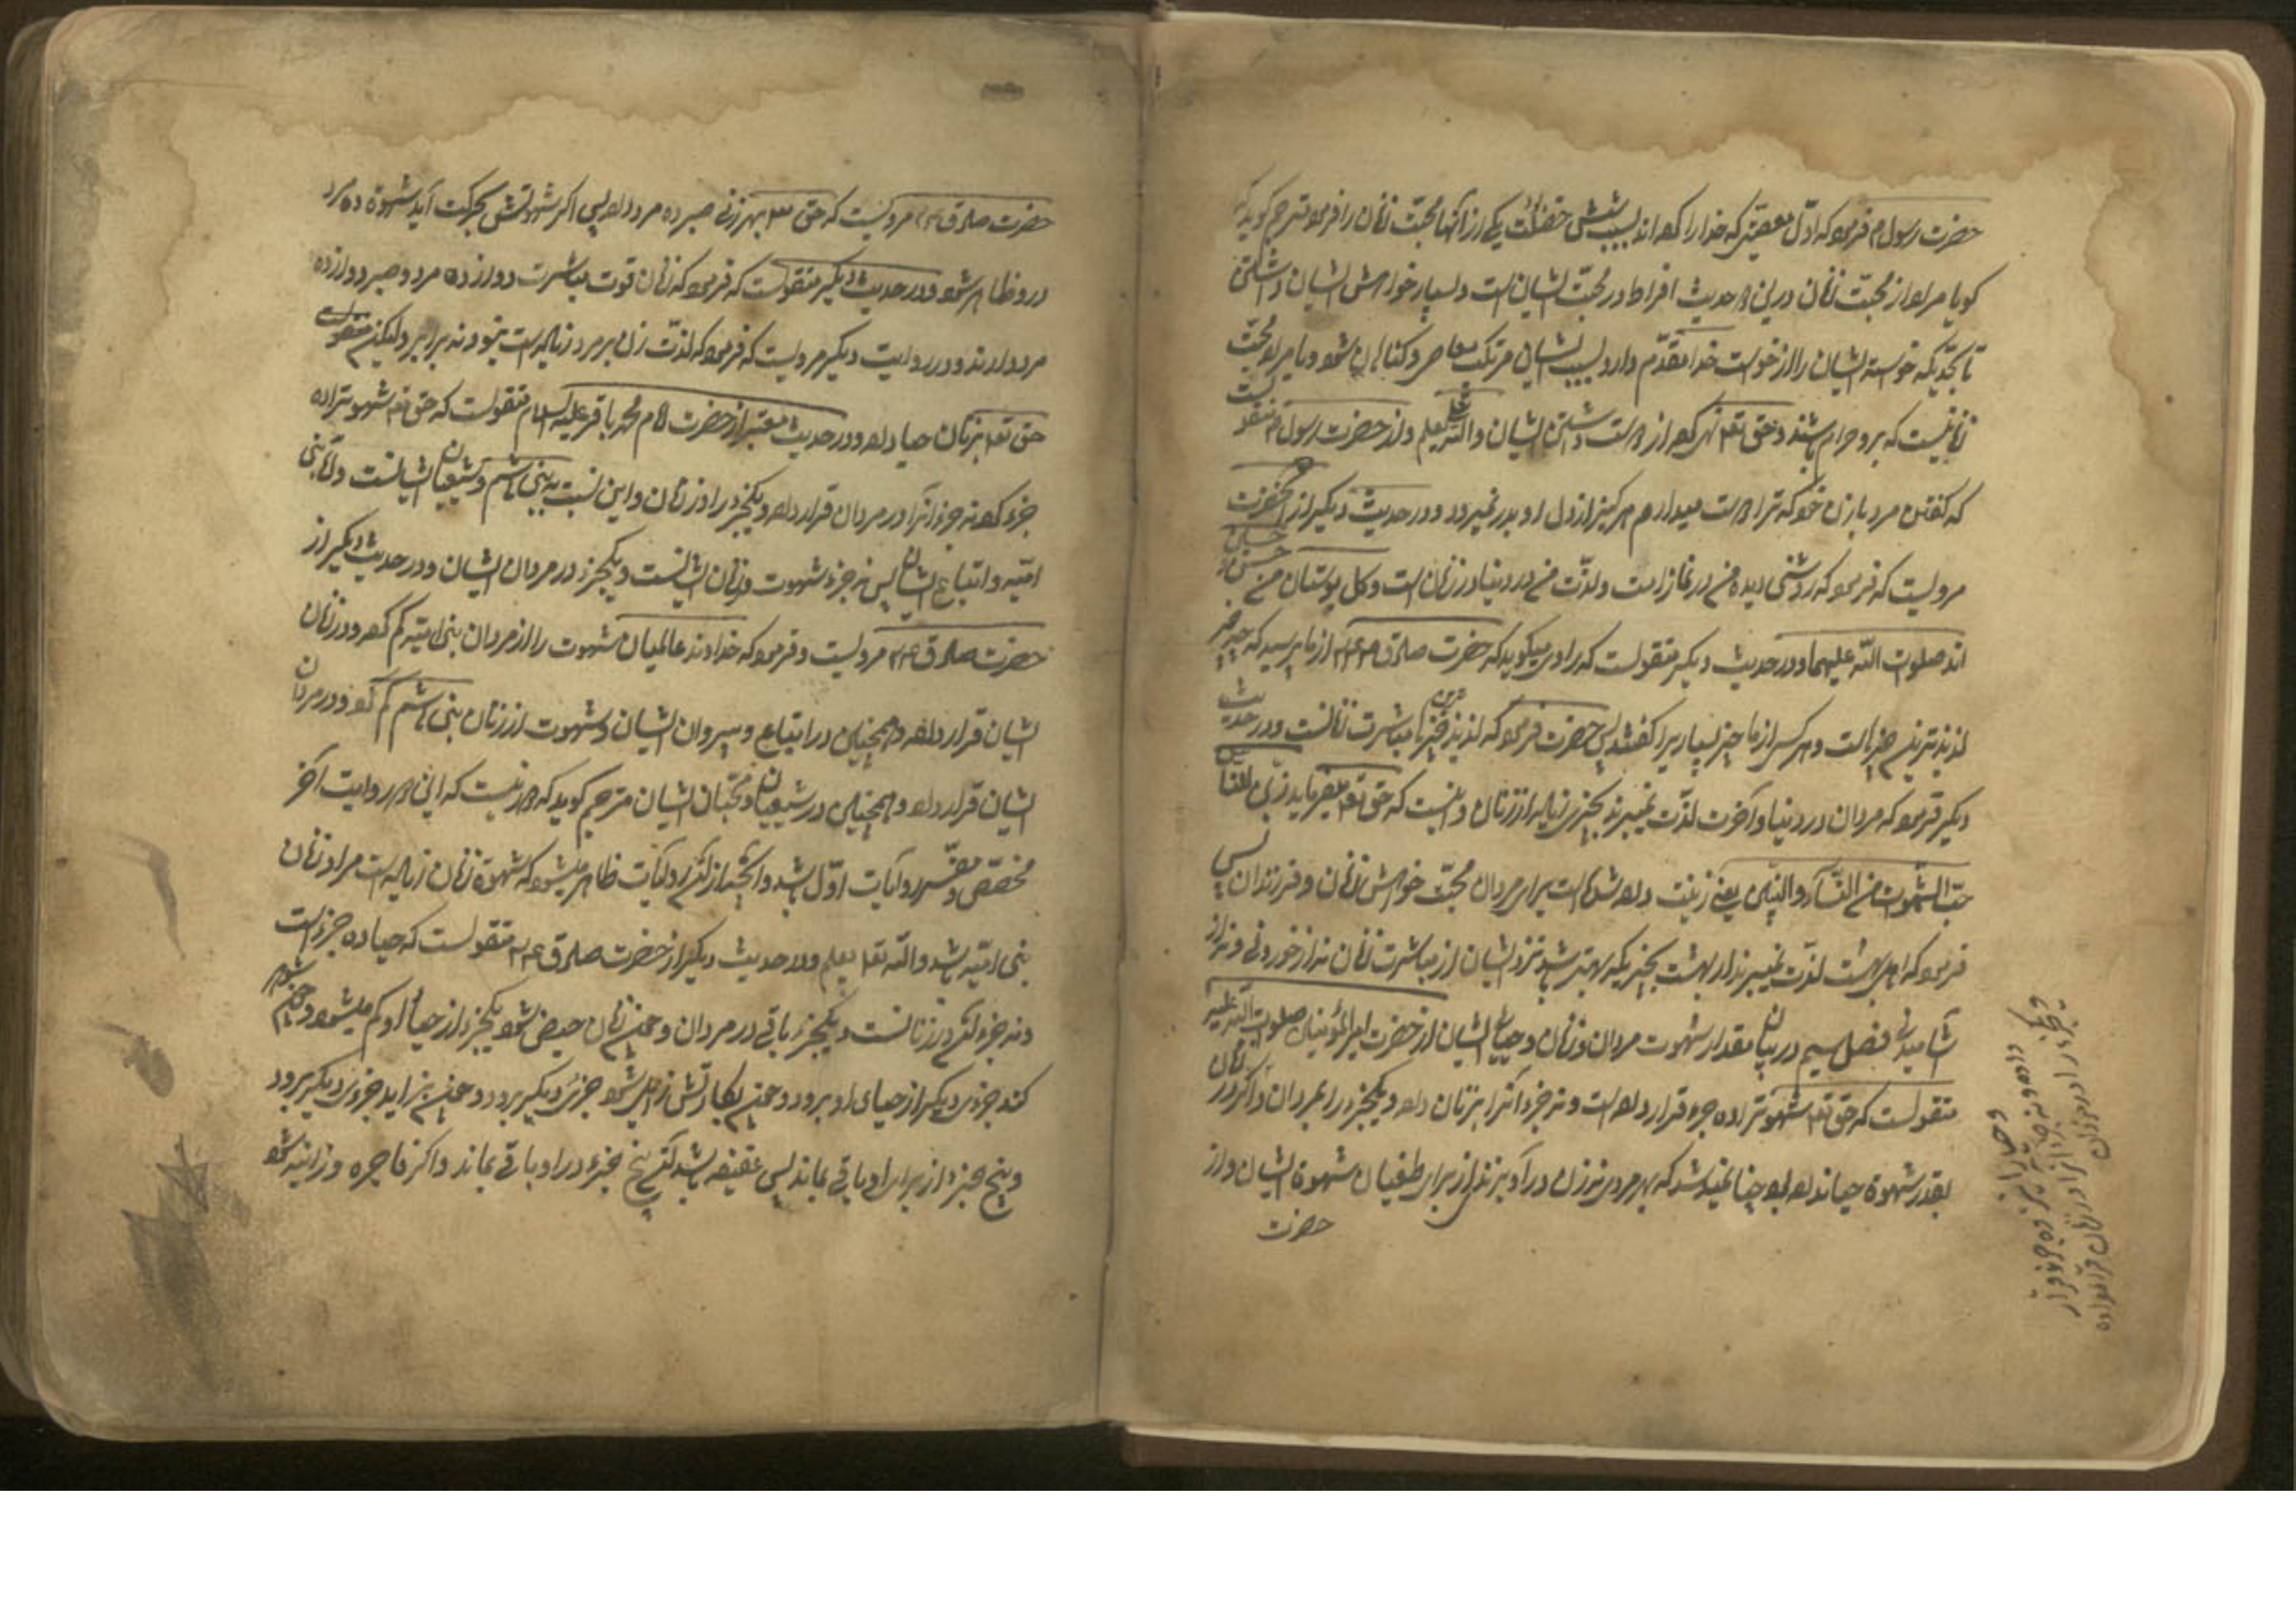 حضرت رسول م فرمود که اول معصیتی که خدا را کردهاند بسبب شش خصلت یکی از آنها محبت زنان را فرمود مترجم گوید که
کویا مراد از محبت زنان در این حدیث افراط در محبت ایشان است و بسیار خواهش ایشان داشتن
تا بحدیکه خواسته ایشان را از خواست خدا مقدم دارد و بسبب ایشان مرتکب معاصی و کناهان شود و یا مراد محبت
زنانیست که برو حرام باشند و حق تعالی نهی کرده از دوست داشتن ایشان والله یعلم و از حضرت رسول م منقولست
که کفتن مرد با زن خود که ترا دوست میدارم هرکز از دل او بدر نمیرود و در حدیث دیکر از آنحضرت
مرویست که فرمود که روشنی دیده من در نماز است و لذت من در دنیا در زنان است و کل بوستان من حسن و حسین
اند صلوات الله علیهما و در حدیث دیکر منقولست که راوی میکوید که حضرت صادق ع از ما پرسید که چه چیز
لذیذترین چیزهاست و هر کس از ما چیز بسیاری را کفتند پس حضرت فرمود که لذیذترین چیزها مباشرت زنانست و در حدیث
دیکر فرمود که مردان در دنیا و آخرت لذت نمیبرند بچیزی زیاده از زنان و اینست که حق تعالی میفرماید زین للناس
حب الشهوات من النساء والبنین یعنی زینت داده شده است برای مردان محبت خواهش زنان و فرزندان پس
فرمود که اهل بهشت لذت نمیبرند در بهشت بچیزیکه بهتر باشد نزد ایشان از مباشرت زنان نه از خوردنی و نه از
آشامیدنی فصل سیم در بیان مقدار شهوت مردان و زنان و حیای ایشان از حضرت امیر المؤمنین صلوات الله علیه
منقولست که حق تعالی شهوترا ده جزء قرار داده است و نه جزء آنرا بزنان داده و یکجزء را بمردان و اکر در زنان
بقدر شهوة حیا نداده بود چنان میشد که بهر مردی نه زن در آویزند از برای طغیان شهوة ایشان و از
حضرت
و حیا را نیز ده جزء قرار
داده و نه جزء آنرا در زنان قرار داده
و یکجزء را در مردان
حضرت صادق ع مرویست که حق تعالی بهر زنی صبر ده مرد داده پس اکر شهوتش بحرکت آید شهوة ده مرد
در و ظاهر شود و در حدیث دیکر منقولست که فرمود که زنان قوت مباشرت دوازده مرد و صبر دوازده
مرد دارند و در روایت دیکر مرویست که فرمود که لذت زن بر مرد زیاده است بنود و نه برابر ولیکن
حق تعالی بزنان حیا داده و در حدیث معتبر از حضرت امام محمد باقر علیه السلام منقولست که حق تعالی شهوترا ده
جزء کرد نه جزء آنرا در مردان قرار داد و یکجزء را در زنان و این نسبت به بنی هاشم و شیعیان ایشانست و اما بنی
امیه و اتباع ایشان پس نه جزء شهوت در زنان ایشانست و یکجزء در مردان ایشان و در حدیث دیکر از
حضرت صادق ع مرویست و فرمود که خداوند عالمیان شهوت را از مردان بنی امیه کم کرد و در زنان
ایشان قرار داد و همچنین در اتباع و پیروان ایشان و شهوت از زنان بنی هاشم کم کرد و در مردان
ایشان قرار داد و همچنین در شیعیان و محبان ایشان مترجم کوید که دور نیست که این دو روایت آخر
مخصص و مفسر روایات اول باشد و آنچه از اکثر روایات ظاهر میشود که شهوة زنان زیاده است مراد زنان
بنی امیه باشد والله تعالی یعلم و در حدیث دیکر از حضرت صادق ع منقولست که حیا ده جزء است
و نه جزء آن در زنانست و یکجزء باقی در مردان و چون زنان حیض شود یکجزء از حیای او کم میشود و چون شوهر
کند جزوی دیکر از حیای او برود و چون بکارتش زایل شود جزئی دیکر برود و چون بزاید جزوی دیکر برود
و پنج جزء از برای او باقی بماند پس عفیفه باشد آن پنج جزء در او باقی بماند و اکر فاجره و زانیه شود